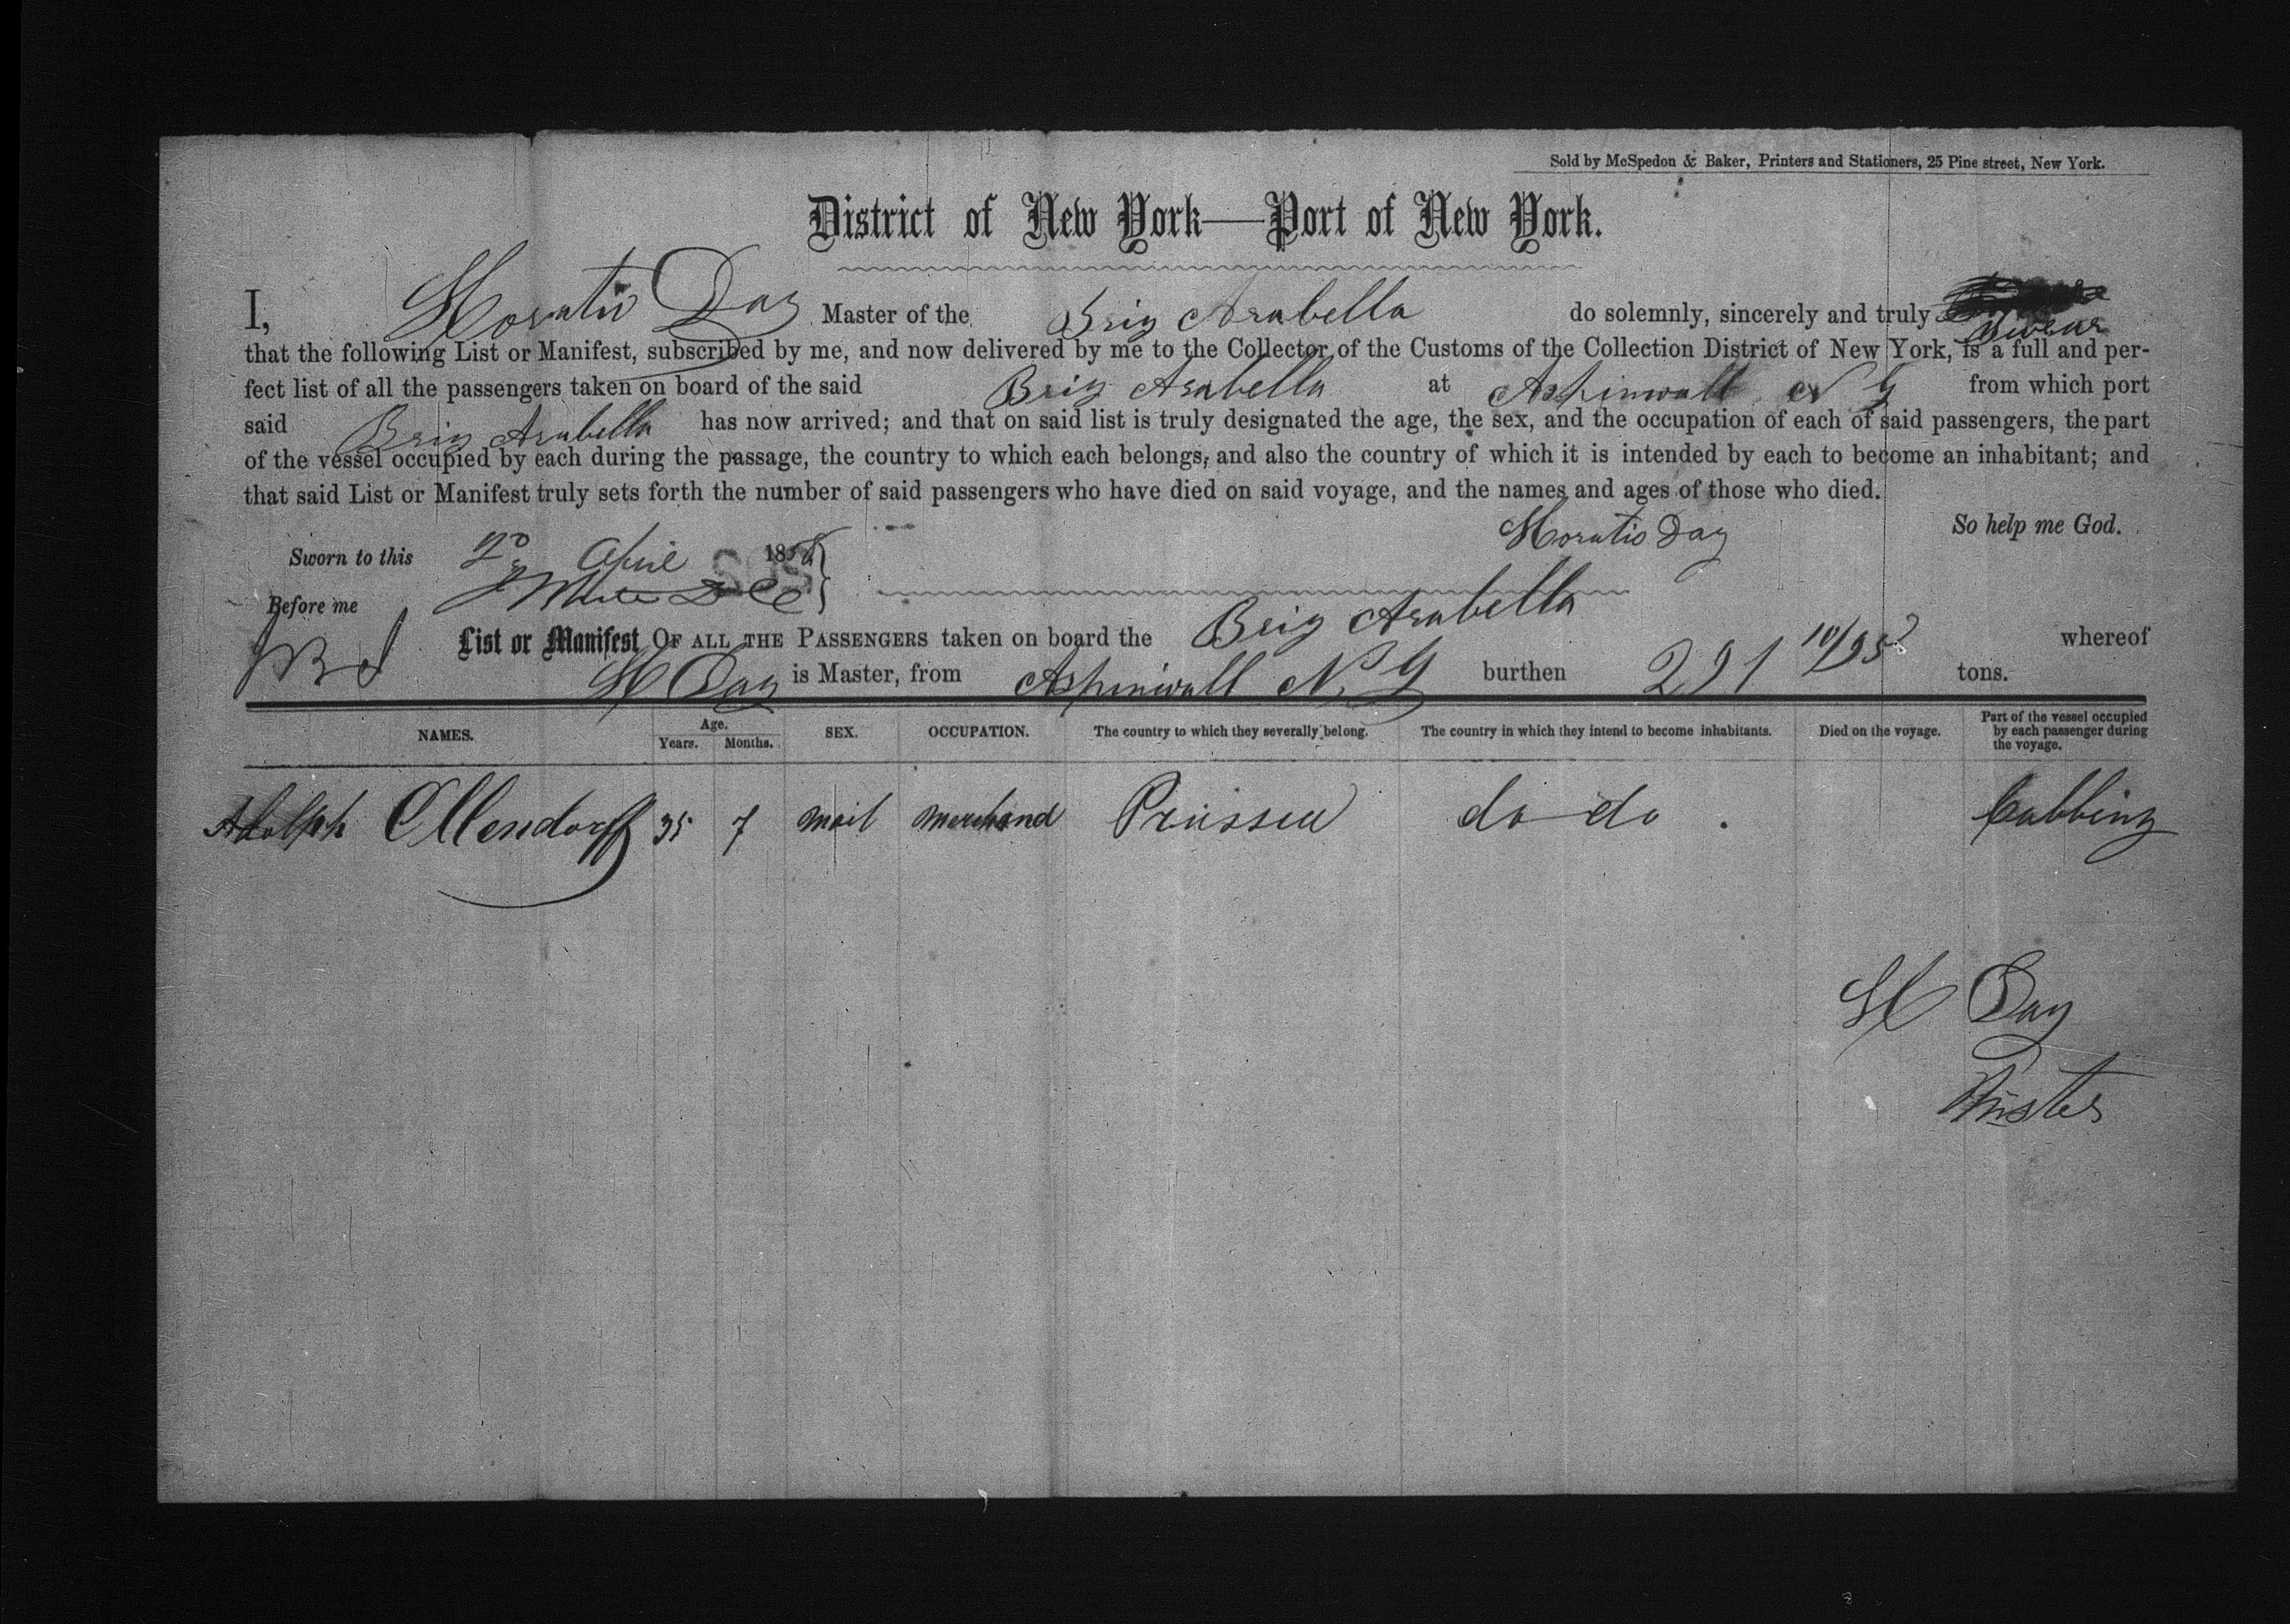 Sold by McSpedon & Baker, Printers and Stationers, 25 Pine street, New York.
District of New York—Port of New York.
I, Horatio Day Master of the Brig Arabella do solemnly, sincerely and truly swear
that the following List or Manifest, subscribed by me, and now delivered by me to the Collector of the Customs of the Collection District of New York, is a full and per-
fect list of all the passengers taken on board of the said Brig Arabella at Aspinwall N G from which port
said Brig Arabella has now arrived; and that on said list is truly designated the age, the sex, and the occupation of each of said passengers, the part
of the vessel occupied by each during the passage, the country to which each belongs, and also the country of which it is intended by each to become an inhabitant; and
that said List or Manifest truly sets forth the number of said passengers who have died on said voyage, and the names and ages of those who died.
So help me God.
Horatio Day
Sworn to this April 185
Before me
List or Manifest OF ALL THE PASSENGERS taken on board the Brig Arabella whereof
H Day is Master, from Aspinwall N. G burthen 291 10/95 tons.
NAMES. Age. Years. Months. SEX. OCCUPATION. The country to which they severally belong. The country in which they intend to become inhabitants. Died on the voyage. Part of the vessel occupied by each passenger during the voyage.
Adolph Ollendorff 35 7 mail merchand Prussia do do . Cabbing
H Day